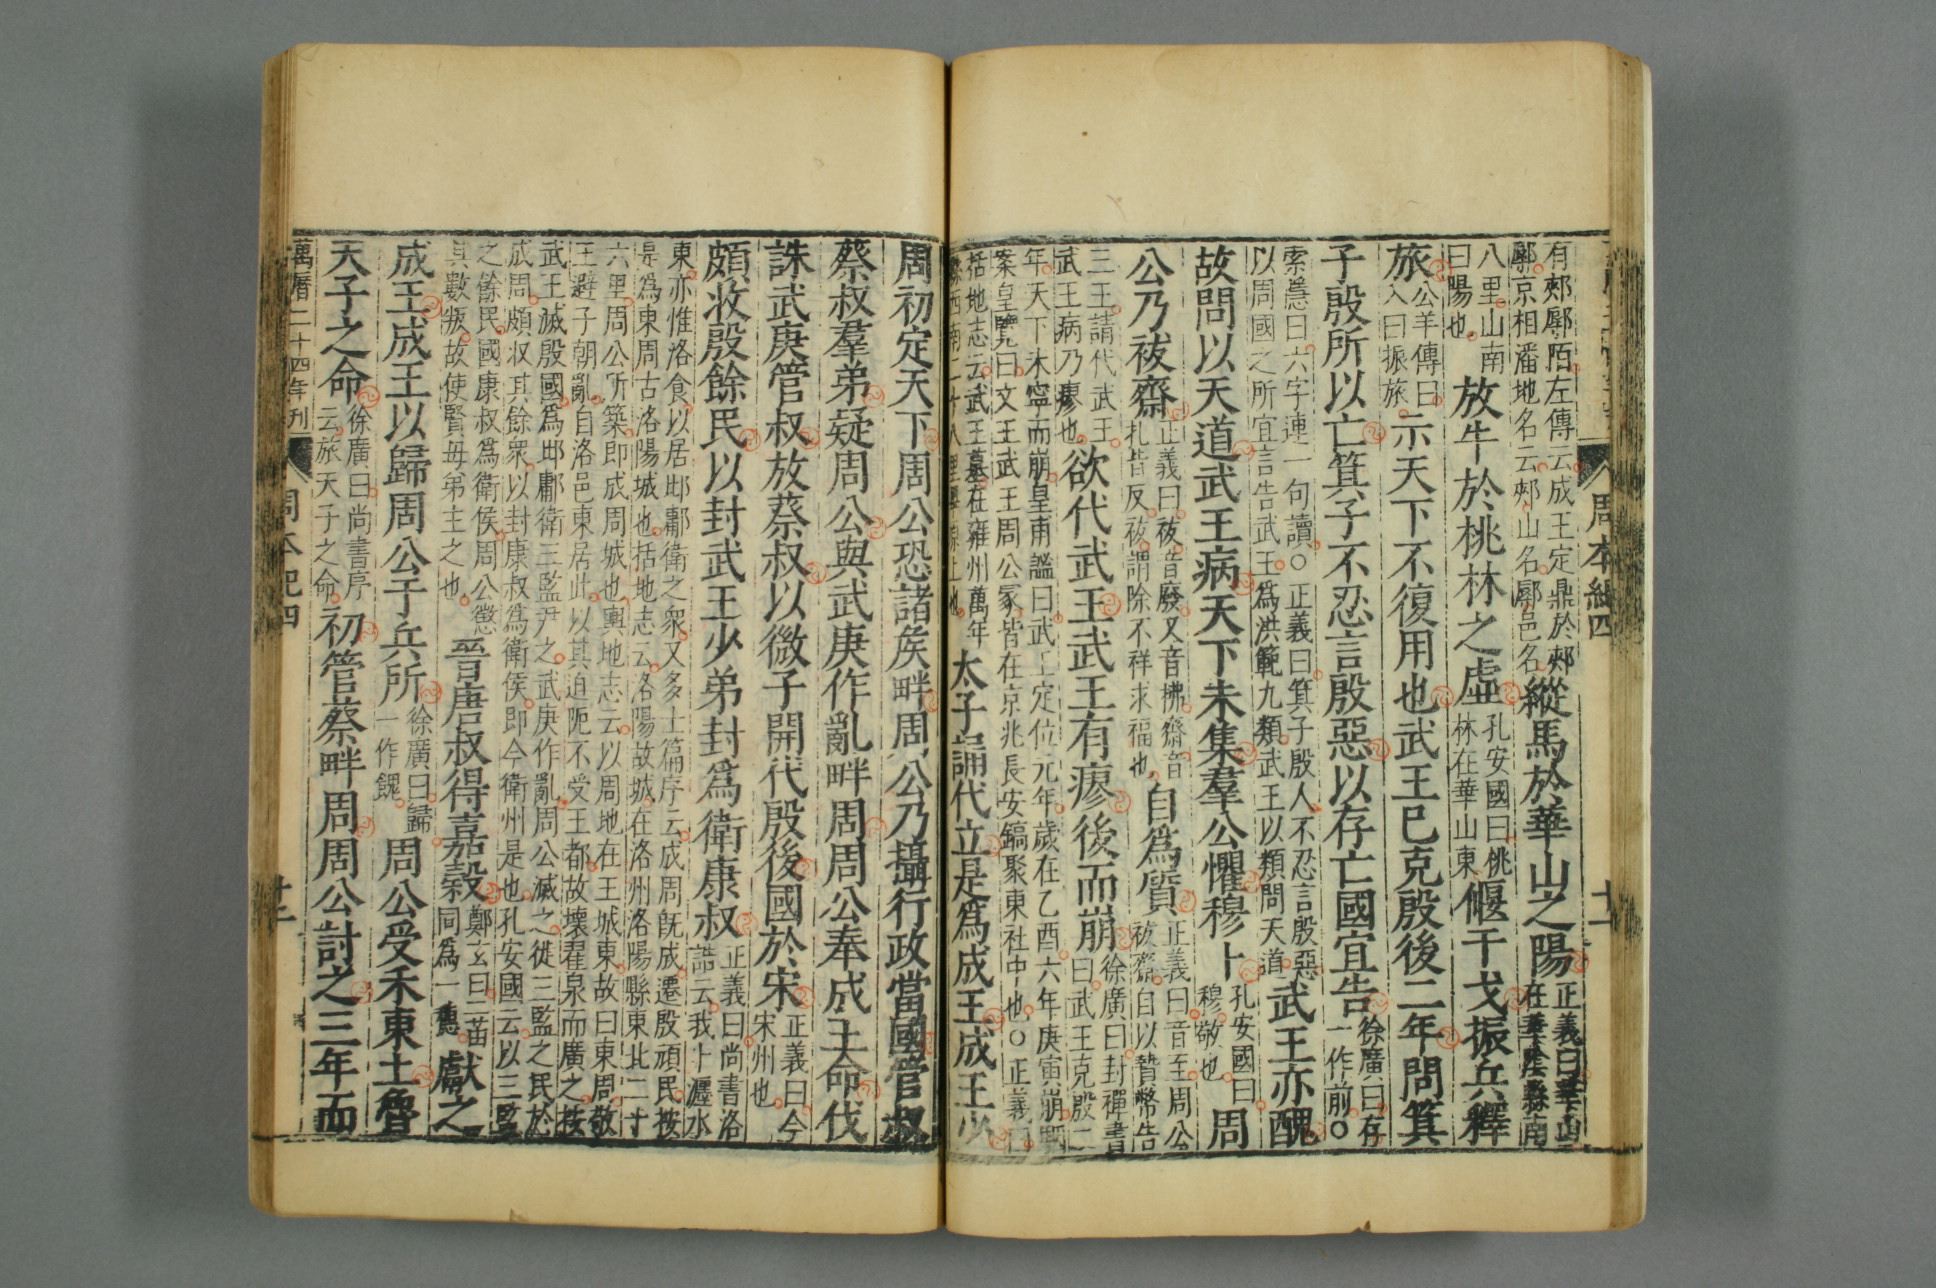 有郟鄏陌左傳云成王定鼎於郟
鄏京相潘地名云郟山名鄏邑名縱馬於華山之陽正義曰華山
在華陰縣南
八里山南
曰陽也放牛於桃林之虛孔安國曰桃
林在華山東偃干戈振兵釋
旅公羊傳曰
入曰振旅示天下不復用也武王已克殷後二年問箕
子殷所以亡箕子不忍言殷惡以存亡國宜告徐廣曰存
一作前○
索隱曰六字連一句讀○正義曰箕子殷人不忍言殷惡
以周國之所宜言告武王爲洪範九類武王以類問天道武王亦醜
故問以天道武王病天下未集羣公懼穆卜孔安國曰
穆敬也周
公乃祓齋正義曰祓音廢又音拂齋音
札皆反祓謂除不祥求福也自爲質正義曰音至周公
祓齋自以贄幣告
三王請代武王
武王病乃瘳也欲代武王武王有瘳後而崩徐廣曰封禪書
曰武王克殷二
年天下未寧而崩皇甫謐曰武王定位元年歲在乙酉六年庚寅崩駰
案皇覽曰文王武王周公冢皆在京兆長安鎬聚東社中也○正義曰
括地志云武王墓在雍州萬年
縣西南二十八里畢原上也太子誦代立是爲成王成王少
周初定天下周公恐諸矦畔周公乃攝行政當國管叔
蔡叔羣弟疑周公與武庚作亂畔周周公奉成王命伐
誅武庚管叔放蔡叔以微子開代殷後國於宋正義曰今
宋州也
頗收殷餘民以封武王少弟封爲衛康叔正義曰尚書洛
誥云我卜瀍水
東亦惟洛食以居邶鄘衛之衆又多士篇序云成周旣成遷殷頑民按
是爲東周古洛陽城也括地志云洛陽故城在洛州洛陽縣東北二十
六里周公所築即成周城也輿地志云以周地在王城東故曰東周敬
王避子朝亂自洛邑東居此以其迫阨不受王都故壞翟泉而廣之按
武王滅殷國爲邶鄘衛三監尹之武庚作亂周公滅之徙三監之民於
成周頗收其餘衆以封康叔爲衛侯即今衛州是也孔安國云以三監
之餘民國康叔爲衛侯周公懲
其數叛故使賢母弟主之也晉唐叔得嘉穀鄭玄曰二苗
同爲一穗獻之
成王成王以歸周公于兵所徐廣曰歸
一作餽周公受禾東土魯
天子之命徐廣曰尚書序
云旅天子之命初管蔡畔周周公討之三年而
萬曆二十四年刊
周本紀四
周本紀四